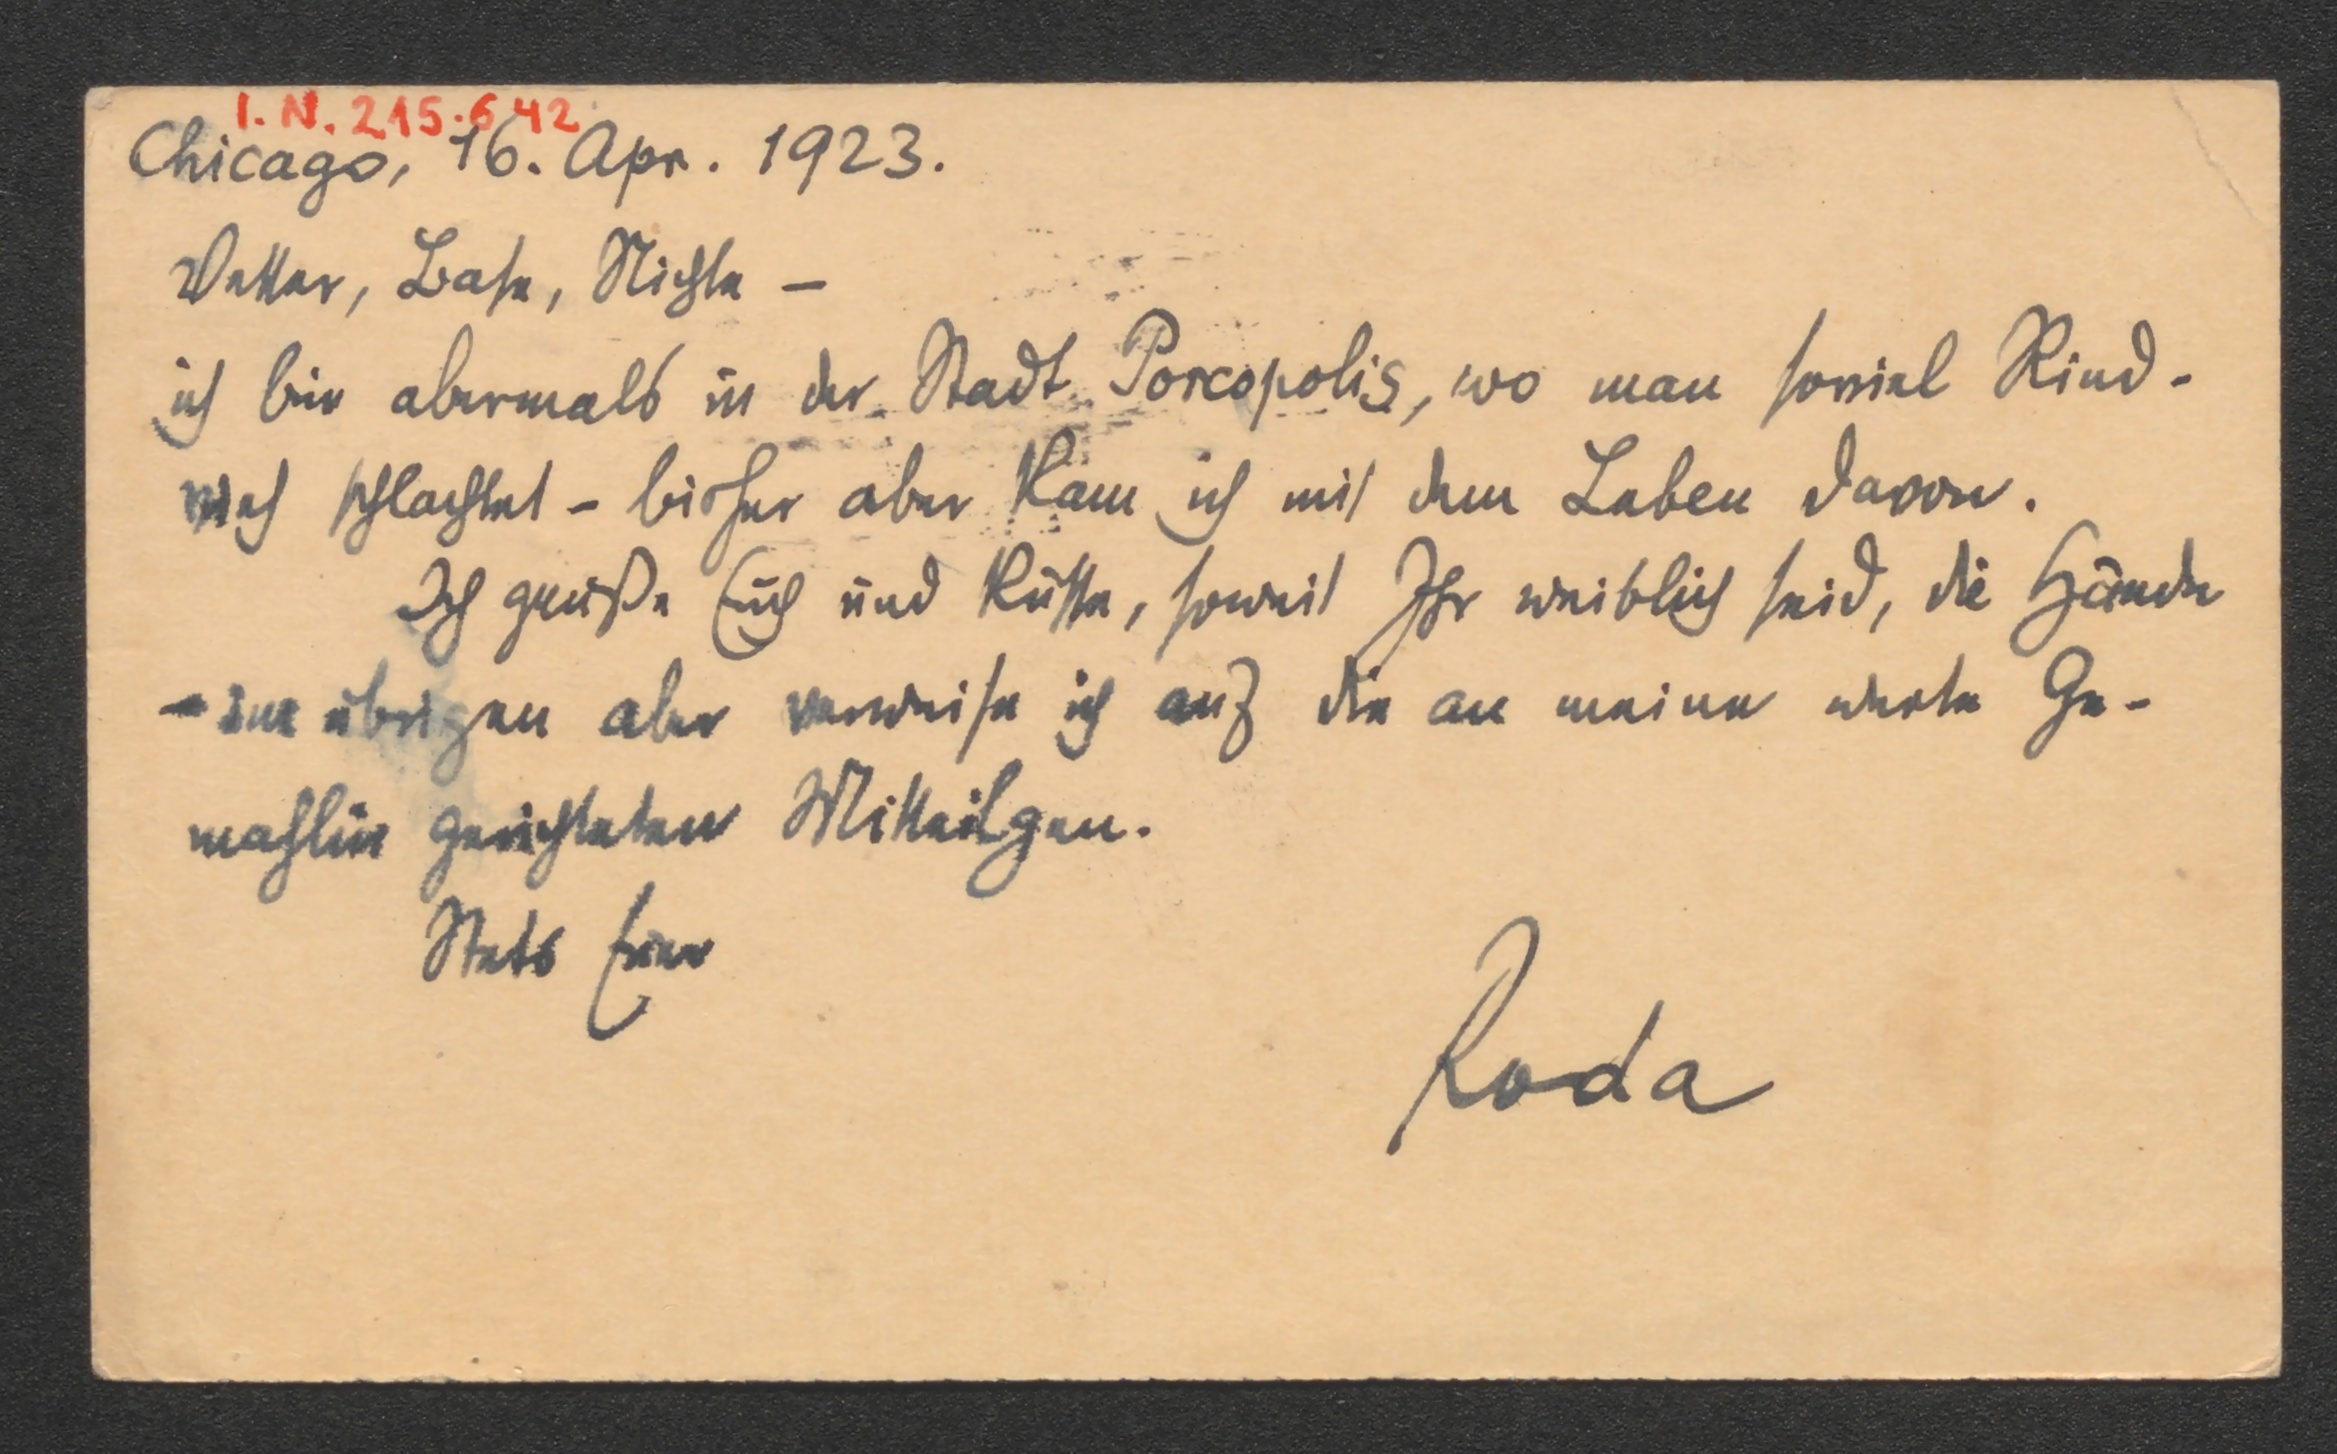 I. N. 215.642
Chicago, 16. Apr. 1923.
Vetter, Base, Nichte –
ich bin abermals in der Stadt Porcopolis, wo man soviel Rind-
vieh schlachtet – bisher aber kam ich mit dem Leben davon.
Ich grüße Euch und küsse, soweit Ihr weiblich seid, die Hände
– im übrigen aber verweise ich auf die an meine werte Ge-
mahlin gerichteten Mitteilgen.
Stets Euer
Roda